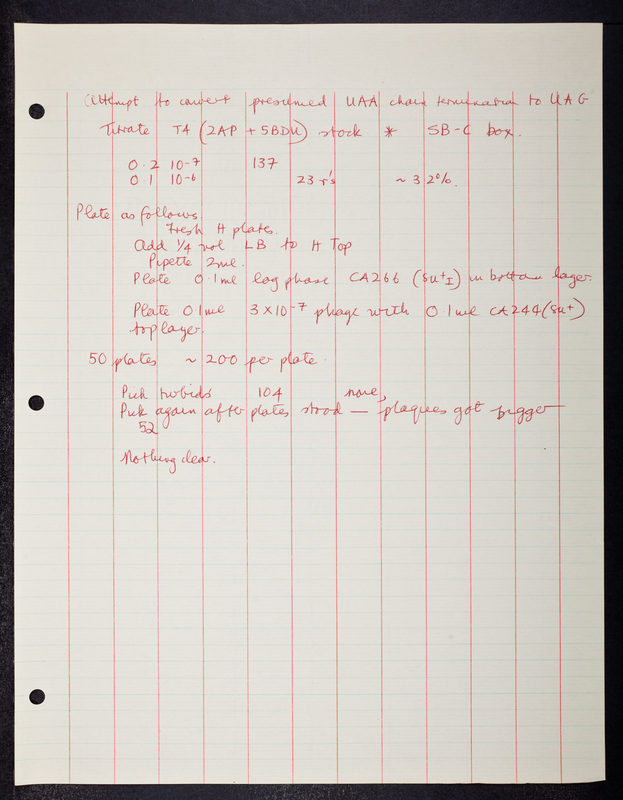 Attempt to convert presumed UAA chain termination to UAG
Titrate T4 (2AP + 5BDU) stock * SB-C box.
0.2 10-7 137
0.1 10-6 23 r's ~ 3.2%.
Plate as follows
Fresh H plates.
Add 1/4 vol LB to H Top
Pipette 2ml.
Plate 0.1ml log phase CA266 (su+I) in bottom layer.
Plate 0.1ml 3×10-7 phage with 0.1ml CA244(su+)
top layer.
50 plates ~ 200 per plate.
Pick turbids 104 none,
Pick again after plates stood — plaques got bigger
52
Nothing clear.